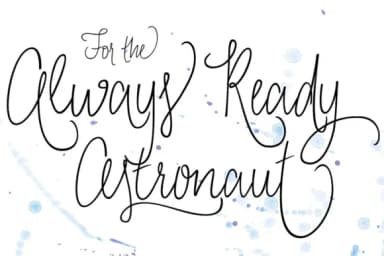 For the
Always Ready
Astronaut